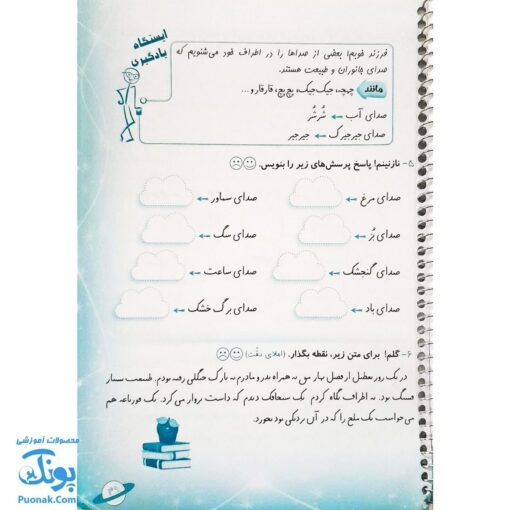 ایستگاه
یادگیری
فرزند خوبم! بعضی از صداها را در اطراف خود می‌شنویم که
صدای جانوران و طبیعت هستند.
مانند چهچه، جیک‌جیک، پچ‌پچ، قارقار و...
صدای آب ← شُرشُر
صدای جیرجیرک ← جیرجیر
۵- نازنینم! پاسخ پرسش‌های زیر را بنویس.
صدای مرغ ← صدای سماور ←
صدای بُز ← صدای سگ ←
صدای گنجشک ← صدای ساعت ←
صدای باد ← صدای برگ خشک ←
۶- گلم! برای متن زیر، نقطه بگذار. (املای دقّت)
در یک روز تعطیل از فصل بهار من به همراه پدر و مادرم به پارک جنگلی رفته بودم. طبیعت بسیار
قشنگ بود. به اطراف نگاه کردم یک سنجاقک دیدم که داشت پرواز می‌کرد. یک قورباغه هم
می‌خواست یک ملخ را که در آن نزدیکی بود بخورد.
محصولات آموزشی
پونک
Puonak.Com